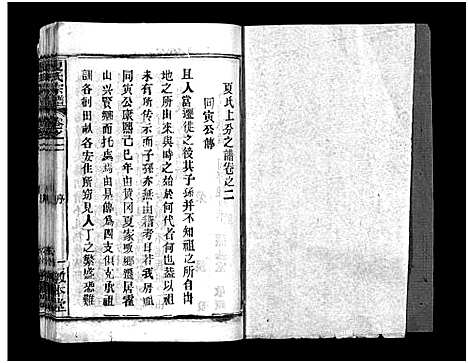 夏氏上分之譜卷之二
同寅公傳
且人當遷徙之後其子孫并不知祖之所自出
地之所由來與時之始於何代者何也蓋以祖
未有所傳示而子孫亦無由稽考日若我房祖
同寅公康熙己巳年由黃冈夏家墩鄉遷居霍
山興賢鄉而托處焉由是傳為四支俱克承祖
訓各創田畝各安住所窃見人丁之繁盛恐難
氏宗譜
卷之二
序
一
敦本堂